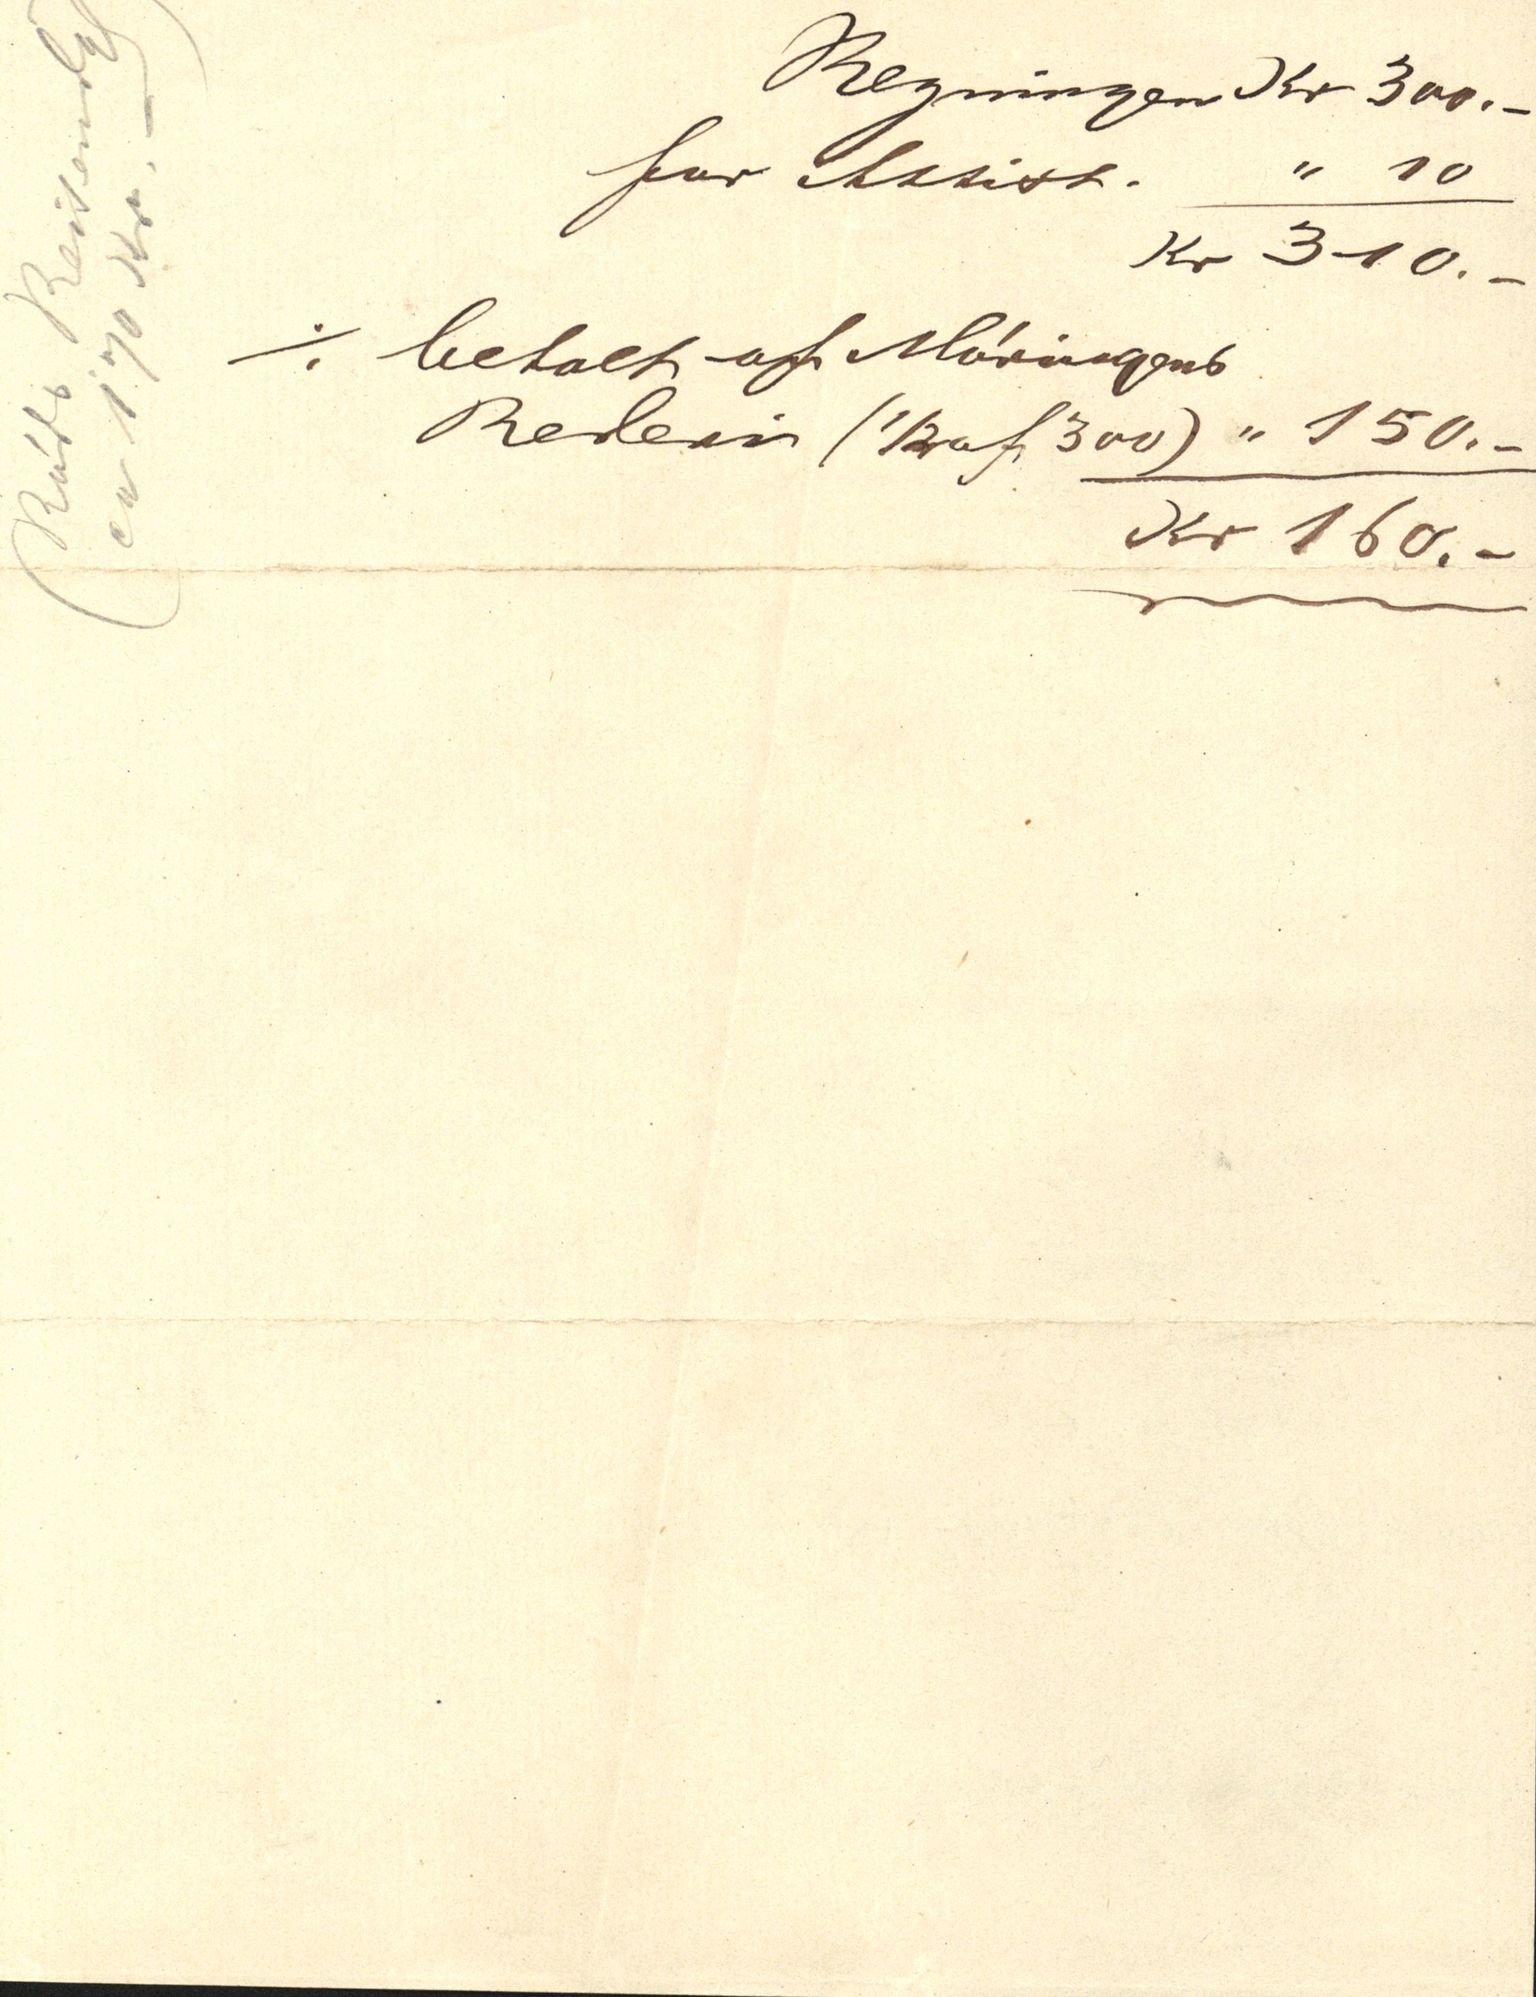 Regningen Kr 300.-
for Assist. " 10
Kr 310.-
./. betalt af Møringens
Rederi (1/2 af 300) " 150.-
Kr 160.-
ca 170 Kr.-